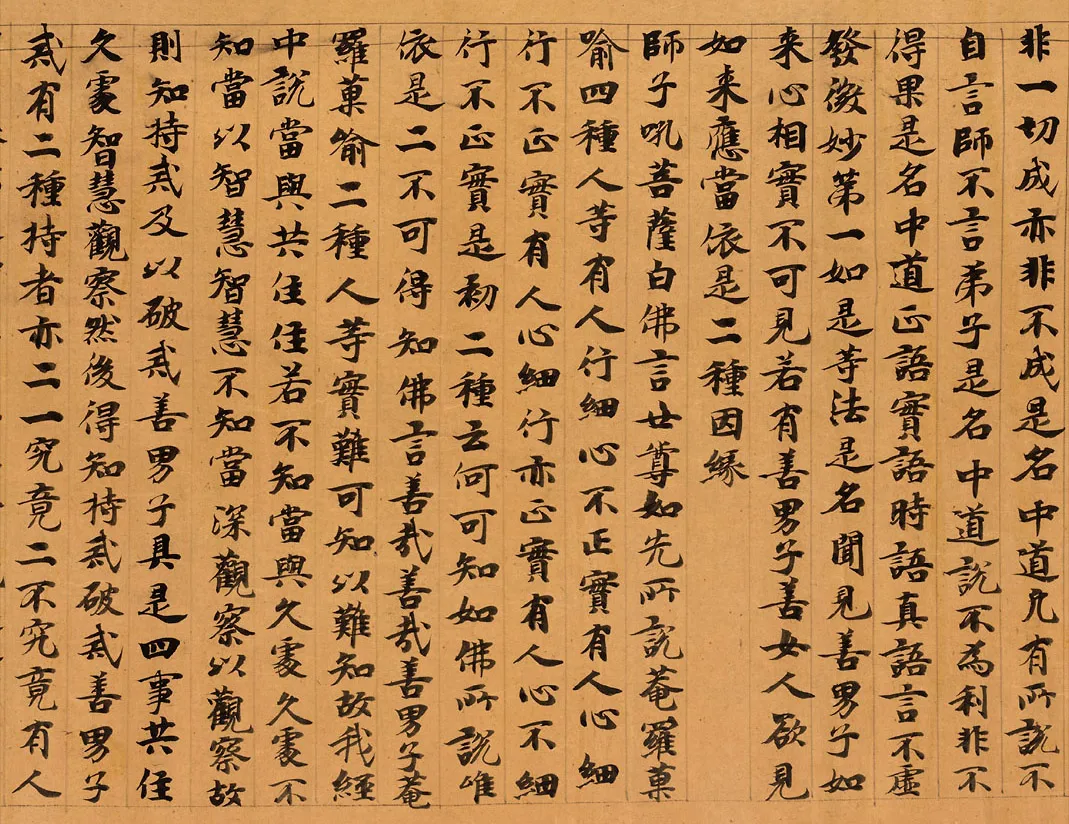 非一切成亦非不成是名中道凡有所說不
自言師不言弟子是名中道說不為利非不
得果是名中道正語實語時語真語言不虛
發微妙第一如是等法是名聞見善男子如
来心相實不可見若有善男子善女人欲見
如来應當依是二種因緣
師子吼菩薩白佛言世尊如先所說菴羅菓
喻四種人等有人行細心不正實有人心細
行不正實有人心細行亦正實有人心不細
行不正實是初二種云何可知如佛所說唯
依是二不可得知佛言善哉善哉善男子菴
羅菓喻二種人等實難可知以難知故我經
中說當與共住住若不知當與久處久處不
知當以智慧智慧不知當深觀察以觀察故
則知持戒及以破戒善男子具是四事共住
久處智慧觀察然後得知持戒破戒善男子
戒有二種持者亦二一究竟二不究竟有人